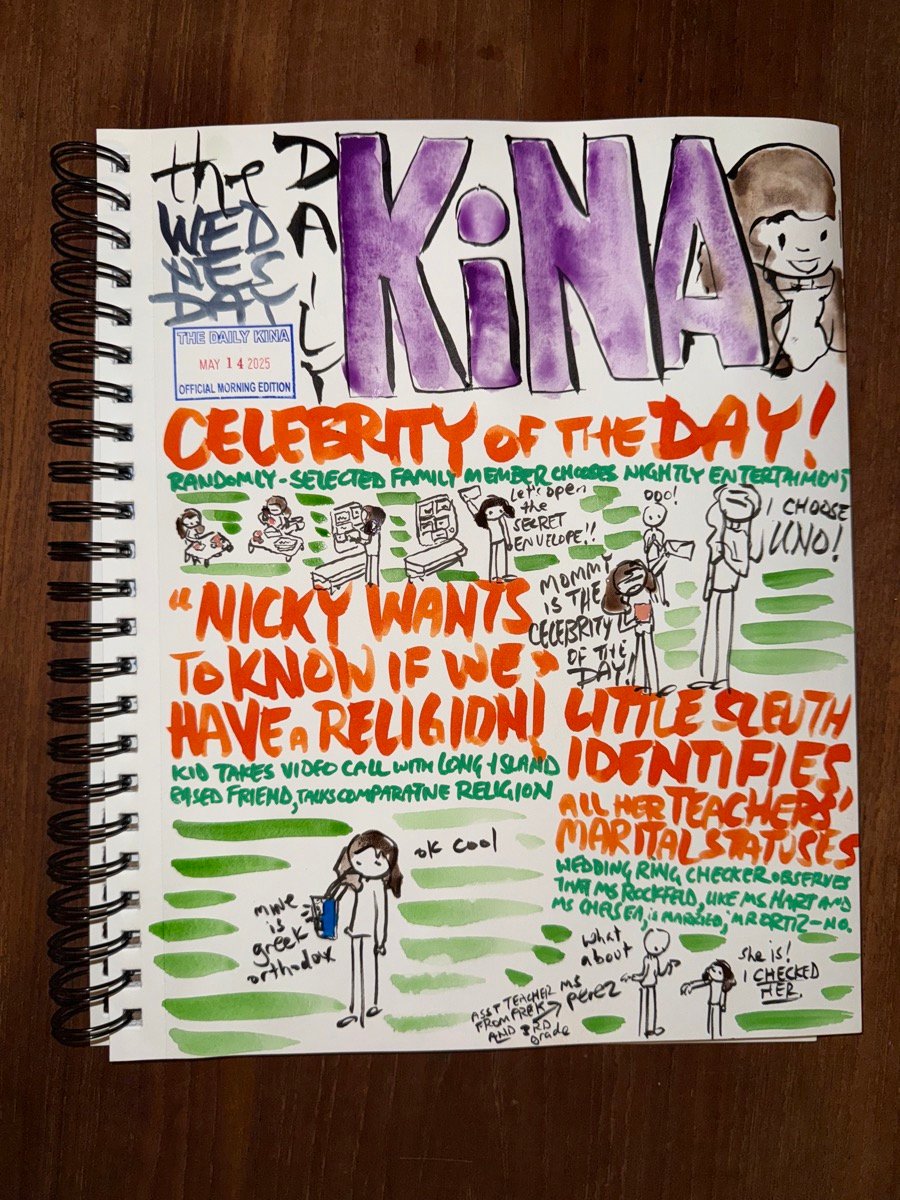 the
DAILY
KiNA
WED
NES
DAY
THE DAILY KINA
MAY 14 2025
OFFICIAL MORNING EDITION
CELEBRITY OF THE DAY!
RANDOMLY-SELECTED FAMILY MEMBER CHOOSES NIGHTLY ENTERTAIMONT
Let's open
the
SECRET
ENVELOPE!!
OOO!
I CHOOSE
UNO!
MOMMY
IS THE
CELEBRITY
OF THE
DAY!
"NICKY WANTS
TO KNOW IF WE
HAVE A RELIGION!"
KID TAKES VIDEO CALL WITH LONG ISLAND
BASED FRIEND, TALKS COMPARATIVE RELIGION
mine
is
greek
orthodox
ok cool
LITTLE SLEUTH
IDENTIFIES
ALL HER TEACHERS'
MARITAL STATUSES
WEDDING RING CHECKER OBSERVES
THAT MS ROCKFELD, LIKE MS HART AND
MS CHELSEA, is MARRIED; MR ORTIZ-NO.
what
about
MS
perez
ASST TEACHER
FROM PREK
AND 3RD
Grade
She is!
I CHECKED
HER.